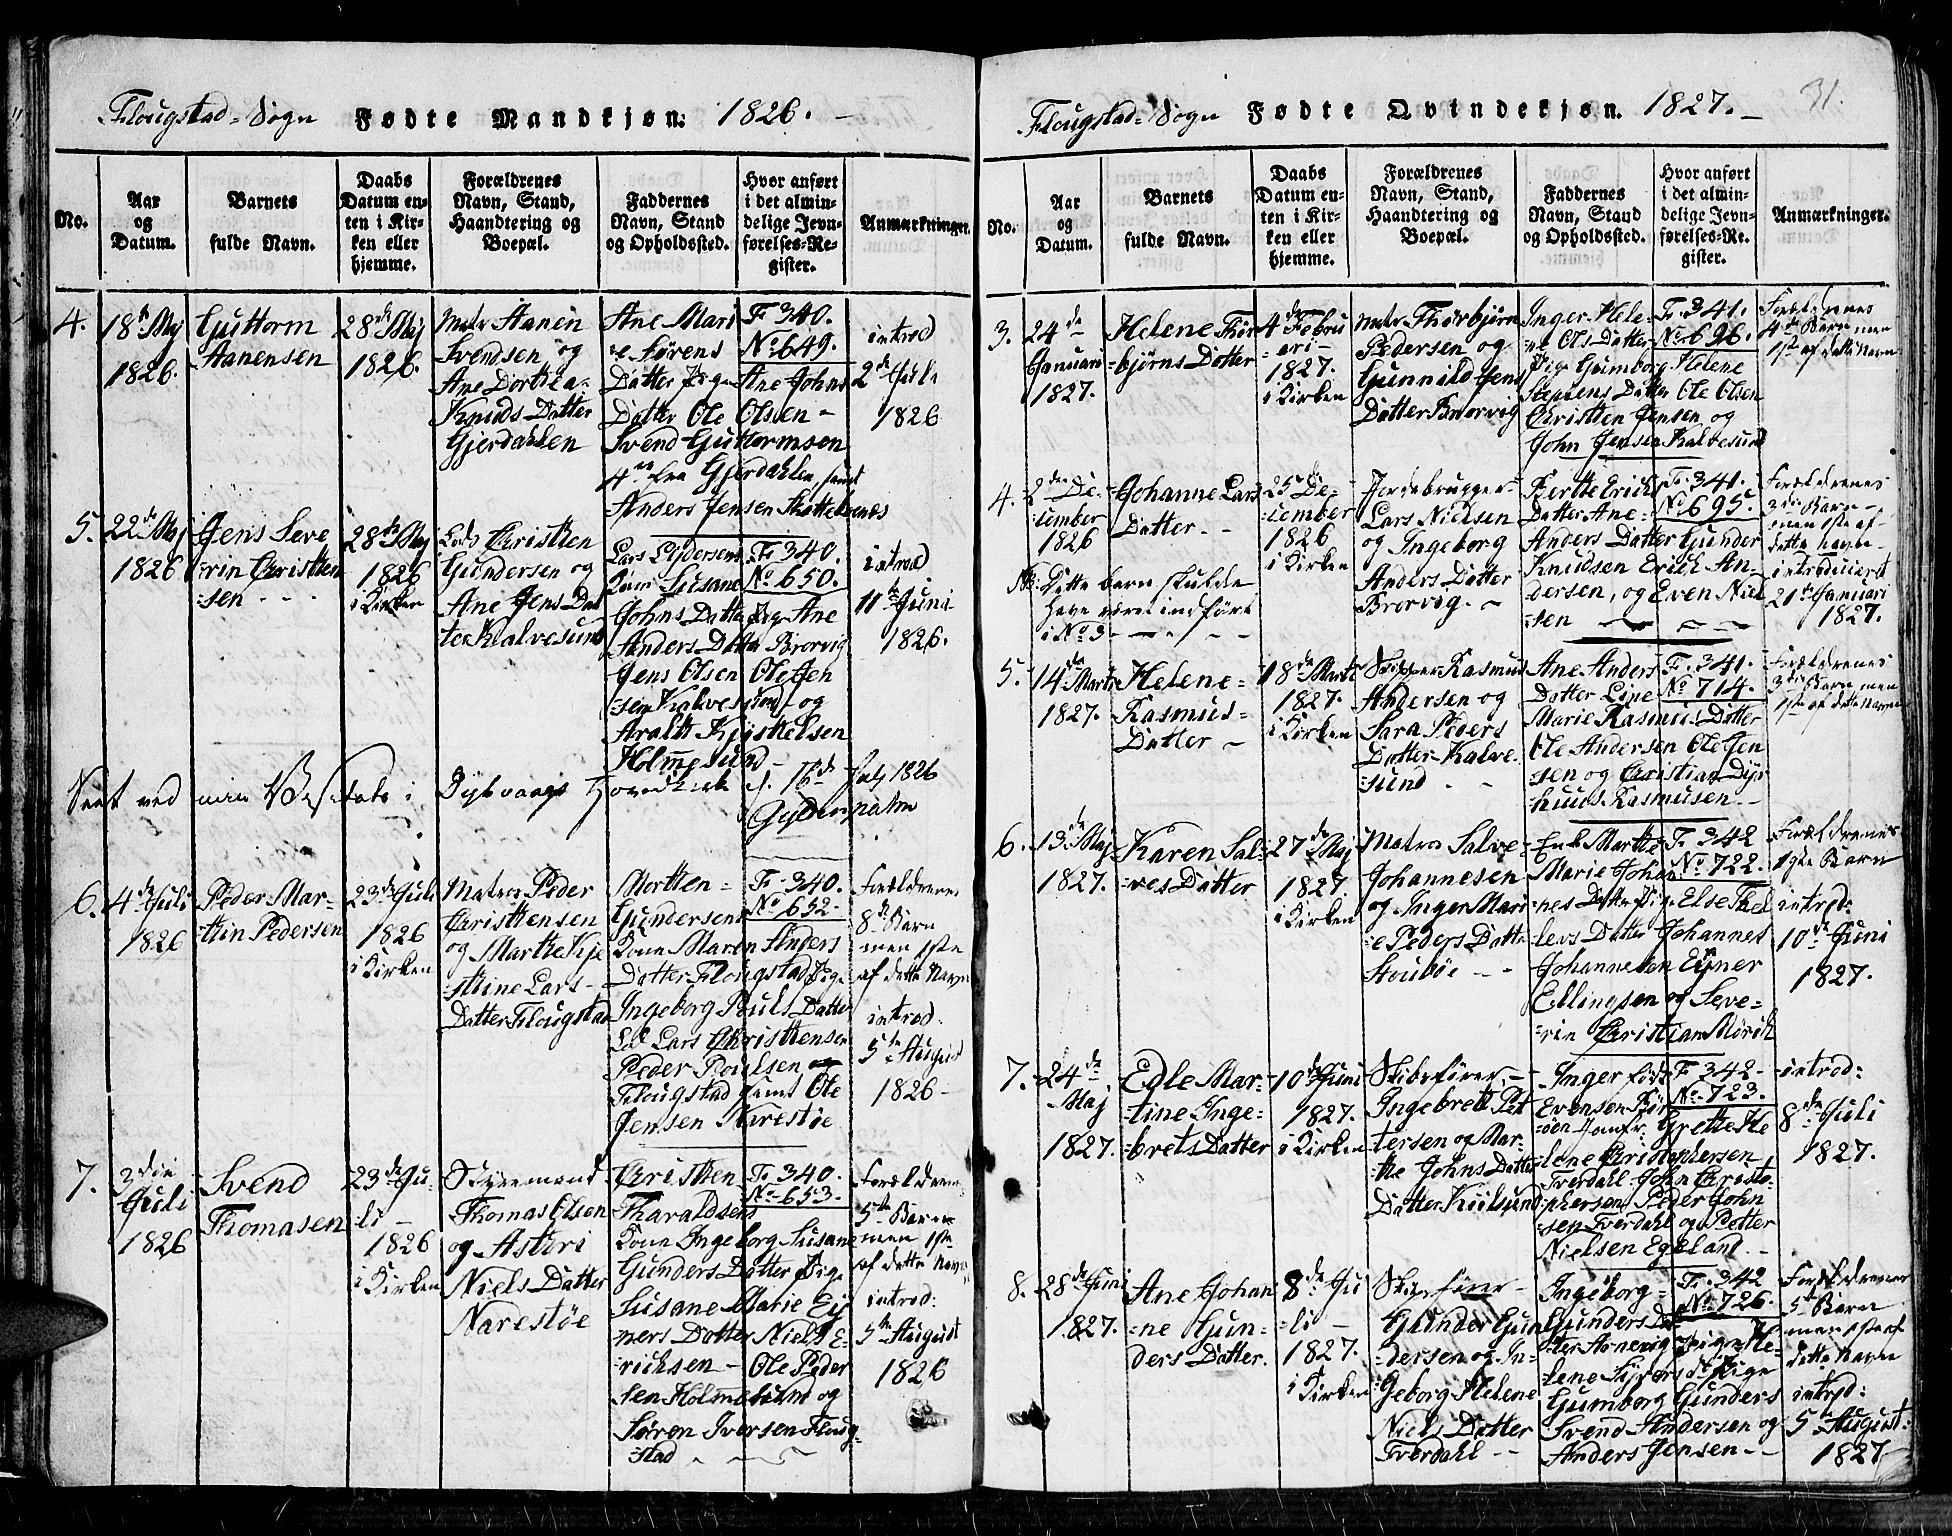 Flougstad-Sogn Fødte Mandkjøn: 1826.
No.
Aar
og
Datum.
Barnets
fulde Navn.
Daabs
Datum en-
ten i Kir-
ken eller
hjemme.
Forældrenes
Navn, Stand,
Haandtering og
Boepæl.
Faddernes
Navn, Stand
og Opholdssted.
Hvor anført
i det almin-
delige Jevn-
førelses-Re-
gister.
Anmærkninger.
4.
18de Maj
1826.
Guttorm
Aanensen
28de Maj
1826.
Matr Aanen
Svendsen og
Ane Dorthea
Knuds Datter
Gjerdahlen
Ane Mari
e Sørens
Datter Pige Ane Johns
Datter Ole Olsen
Svend Guttormsen
4re fra Gjerdahlen samt
Anders Jensen
F: 340.
No 649.
introd
2de Juli
1826
5.
22de Maj
1826
Jens Seve
rin Christen
sen
28de Maj
1826
i Kirken
Lods Christen
Gundersen og
Ane Jens Dat
ter Kalvesund
Lars
Kone Susane
Johns Datter Pige Ane
Anders Datter Brorvig
Jens Olsen Ole Jen
sen Kalvesund og
Aralth Kjistelsen
Holmesund
F: 340.
No 650.
introd
11te Juni
1826.
Seet ved min Visitats i Dybvaags Hovedkirke d. 16de July 1826
6.
4de Juli
1826
Peder Mar-
thin Pedersen
23de Juli
1826
i Kirken
Matros Peder
Christensen
og Marthe Kje
stine Lars-
Datter Flougstad
Morten
Gundersens
Kone Maren Anders
Datter Flougstad Pige
Ingeborg Pouls Datter
Lods Lars Christensen
Peder Poulsen
Flougstad samt Ole
Jensen Narestøe
F: 340.
No 652.
Forældrenes
8de Barn
men 1ste
af dette Navn
introd:
5te August
1826
7.
3die
Juli
1826
Svend
Thomasen
23de Ju-
li
1826
i Kirken
Styrmand
Thomas Olsen
og Asteri
Niels Datter
Narestøe
Christen
Tharaldsens
Kone Ingeborg Susane
Gunders Datter Pige
Susane Marie Ey
ners Datter Niels E-
richsen Ole Peder
sen Holmesund og
Søren Iversen Floug-
stad
F: 340.
No 653.
Forældrenes
5te Barn
men 1ste
af dette Navn
introd:
5te August
1826
Flougstad-Sogn Fødte Qvindekjøn. 1827.
31.
No.
Aar
og
Datum.
Barnets
fulde Navn.
Daabs
Datum en-
ten i Kir-
ken eller
hjemme.
Forældrenes
Navn, Stand,
Haandtering og
Boepæl.
Faddernes
Navn, Stand
og Opholdssted.
Hvor anført
i det almin-
delige Jevn-
førelses-Re-
gister.
Anmærkninger.
3.
24de
Januari
1827.
Helene Thor
bjørns Datter
4de Febru
ari
1827.
i Kirken
Matr Thorbjørn
Pedersen og
Gunnild Jens
Datter Brorvig
Inger Hele-
ne Ols Datter
Pige Gumborg Helene
Stephens Datter Ole Olsen
Christen Jensen og
John Jensen Kalvesund
F: 341.
No 696.
Forældrenes
4de Barn men
1ste af dette Navn
4.
2den De-
cember
1826
Johanne Lars
Datter
25 De-
cember
1826
i Kirken
Jordebrugger
Lars Nielsen
og Ingeborg
Anders Datter
Brorvig.
Berthe Erichs
Datter Ane
Anders Datter Gunder
Knudsen Erich An-
dersen, og Even Niel
sen
F: 341.
No 695.
Forældrenes
3die Barn
men 1ste af
dette navn
introduceret
21de Januari
1827.
NB: Dette barn skulde
have været indført
i No 3
5.
14de Marts
1827.
Helene
Rasmus
Datter
18de Marts
1827.
i Kirken
Skipper Rasmus
Andersen og
Sara Peders
Datter Kalve-
sund
Ane Anders
Datter Line
Marie Rasmus Datter
Ole Andersen Ole Jen
sen og Christian Dyr
huus Rasmusen
F: 341.
No 714.
Forældrenes
3die Barn men
1ste af dette Navn
6.
13de Maj
1827.
Karen Sal-
ves Datter
27de Maj
1827.
i Kirken
Matros Salve
Johannesen
og Inger Mari
e Peders Datter
Stoubøe
Enke Marthe
Marie Johan
nes Datter Pige Else Thel
levs Datter Johannes
Johannesen Eyner
Ellingsen og Seve-
rin Christian Mörch
F: 342
No 722.
Forældrenes
1ste Barn
introd:
10de Juni
1827.
7.
24de
Maj
1827.
Edle Mar-
tine Inge-
brets Datter
10de Juni
1827.
i Kirken
Skibsfører
Ingebrett Pet
tersen og Mar-
the Johns Datter
Datter Kiilsund
Inger
Evensen
Jomfr: Grethe He
lene Christophersen
Tverdahl John Christo-
phersen Peder John
sen Tverdahl og Petter
Nielsen Egeland
F: 342
No 723.
introd:
8de Juli
1827.
8.
28de Juni
1827.
Ane Johan
ne Gun-
ders Datter.
8de Ju
li
1827.
i Kirken
Skibsfører
Gunder Gun
dersen og In-
geborg Helene
Niels Datter
Tverdahl
Ingeborg
Gunders Dat-
ter Arnevig Pige He-
lene Sivers d. Pige
Gumborg Gunders
Svend Andersen og
Anders Jensen
F: 342
No 726.
Forældrenes
5te Barn
men 1ste af
dette Navn
introd:
5te August:
1827